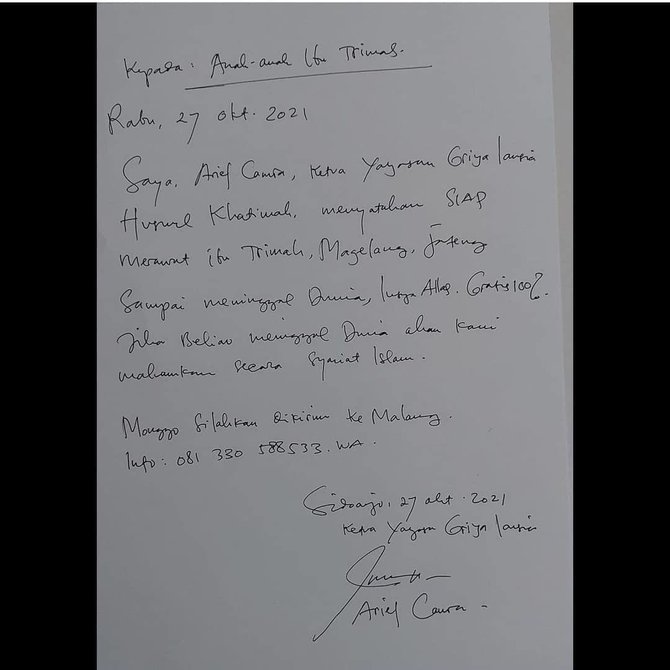 Kepada : Anak-anak Ibu Trimah.
Rabu, 27 Okt. 2021
Saya, Arief Camra, Ketua Yayasan Griya lansia
Husnul Khatimah, menyatakan SIAP
merawat ibu Trimah, Magelang, Jateng
Sampai meninggal Dunia, Insya Allah. Gratis 100%.
Jika Beliau meninggal Dunia akan Kami
makamkan secara Syariat Islam.
Monggo Silahkan Dikirim ke Malang.
Info : 081 330 588533. WA.
Sidoarjo, 27 okt. 2021
Ketua Yayasan Griya lansia
Arief Camra -